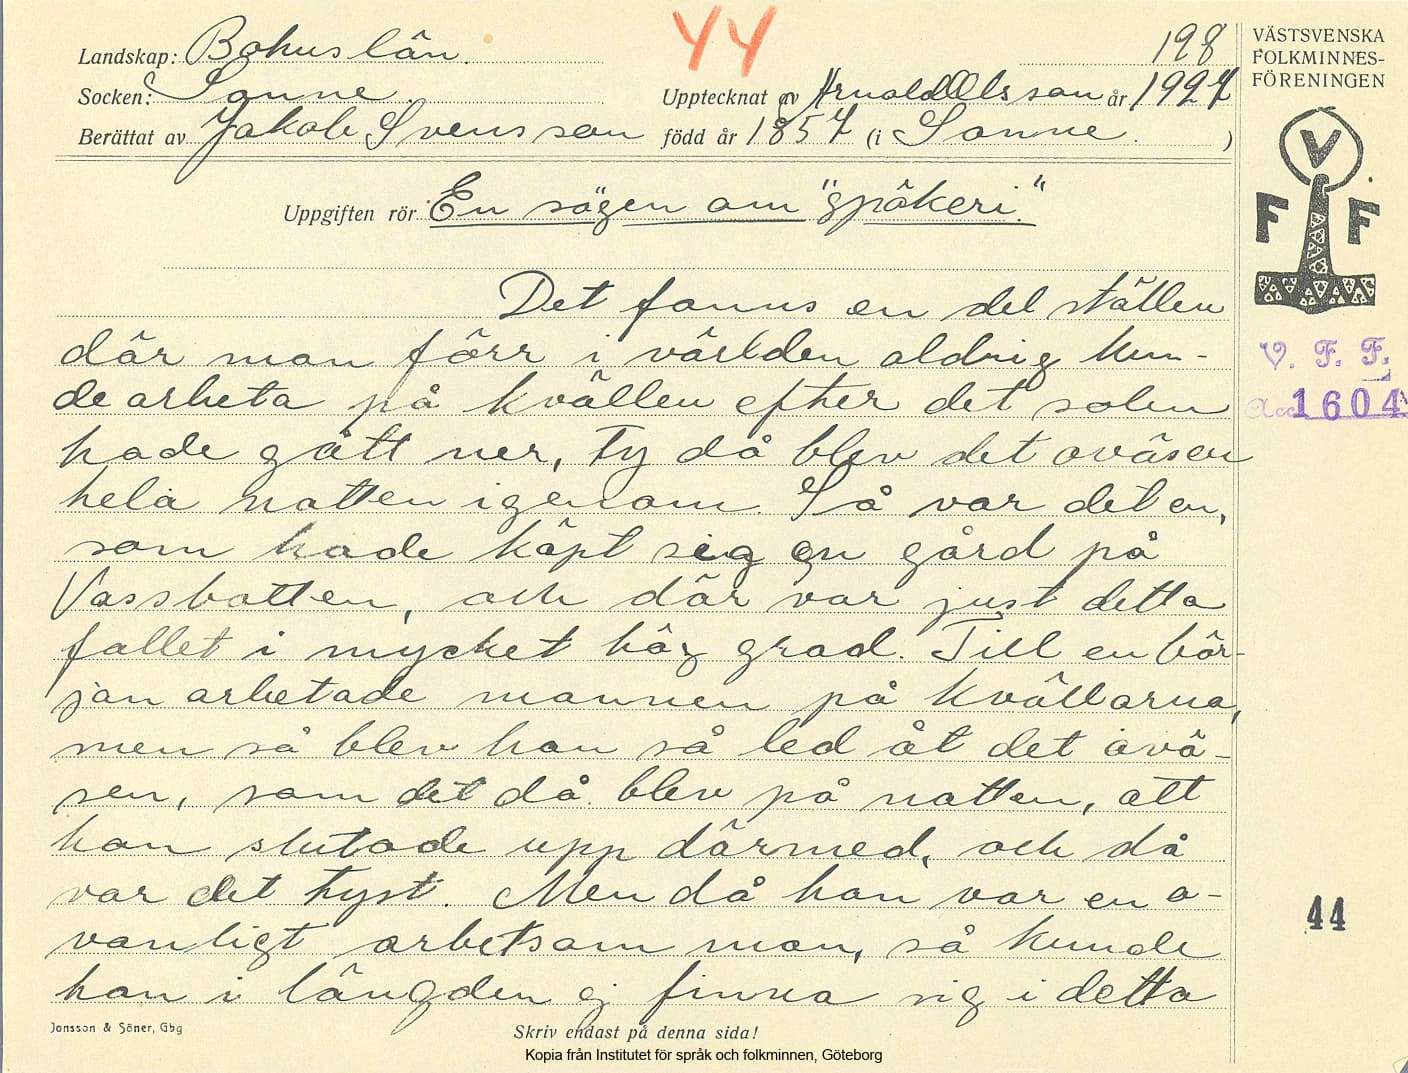 44
198
Landskap: Bohuslän.
Socken: Sanne.
Upptecknat av Arnold Olsson år 1927
Berättat av Jakob Svensson född år 1857 (i Sanne. )
Uppgiften rör En sägen om "spökeri."
Det fanns en del ställen
där man förr i världen aldrig kun-
de arbeta på kvällen efter det solen
hade gått ner, ty då blev det oväsen
hela natten igenom. Så var det en,
som hade köpt sig en gård på
Vassbotten, och där var just detta
fallet i mycket hög grad. Till en bör-
jan arbetade mannen på kvällarna,
men så blev han så led åt det ovä-
sen, som det då blev på natten, att
han slutade upp därmed, och då
var det tyst. Men då han var en o-
vanligt arbetsam man, så kunde
han i längden ej finna sig i detta
Jonsson & Söner, Gbg
Skriv endast på denna sida!
Kopia från Institutet för språk och folkminnen, Göteborg
VÄSTSVENSKA
FOLKMINNES-
FÖRENINGEN
V
F F
V. F. F.
Acc 1604
44